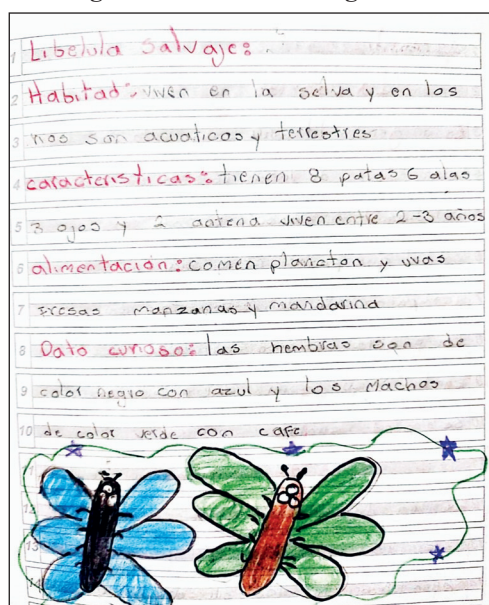 1 Libelula salvaje:
2 Habitad: viven en la selva y en los
3 rios son acuaticos y terrestres
4 caracteristicas: tienen 8 patas 6 alas
5 3 ojos y 2 antena viven entre 2-3 años
6 alimentación: comen plancton y uvas
7 fresas manzanas y mandarina
8 Dato curioso: las hembras son de
9 color negro con azul y los Machos
10 de color verde con cafe
12
13
14